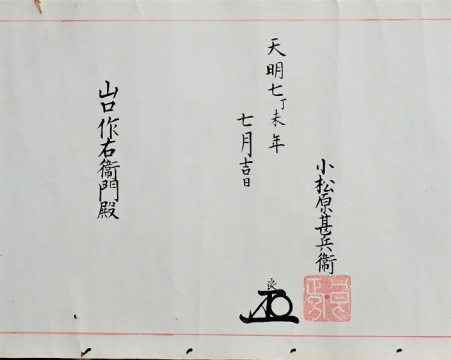 天明七丁未年
七月吉日
小松原甚兵衞
良
山口作右衞門殿